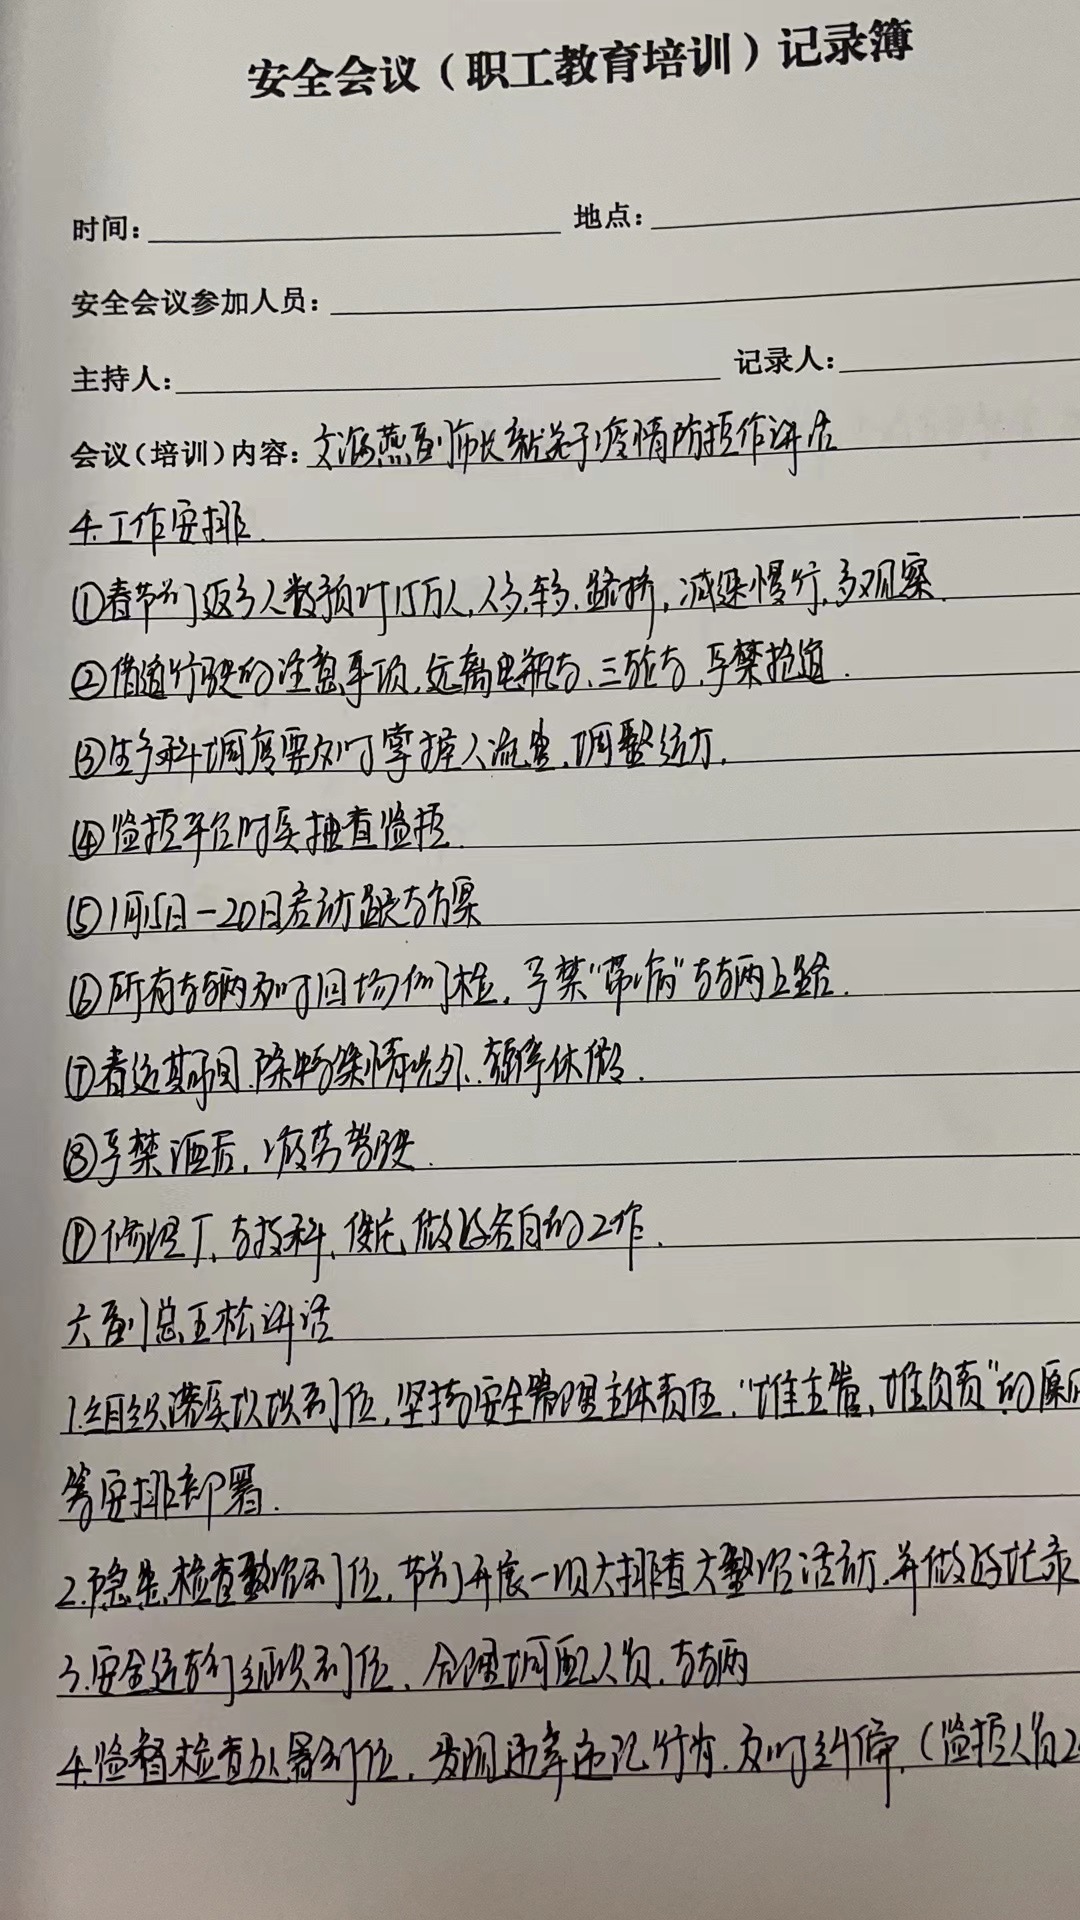 安全会议（职工教育培训）记录簿
时间： 地点：
安全会议参加人员：
主持人： 记录人：
会议（培训）内容：文海燕副师长就关于疫情防控作讲话
4.工作安排.
①春节前返乡人数预计15万人,人多,车多,路挤,减速慢行,多观察.
②借道行驶的注意事项,远离电瓶车、三轮车,严禁抢道.
③生产科调度要及时掌握人流量,调整运力.
④监控平台时实抽查监控.
⑤1月15日-20日启动跳车方案
⑥所有车辆及时回场例检,严禁“带病”车辆上路.
⑦春运期间,除特殊情况外,一律休假.
⑧严禁酒后,疲劳驾驶.
⑨修理厂、车技科、做好各自的工作.
六副总王松讲话
1.组织落实认识到位,坚持安全管理主体责任,“谁主管,谁负责”的原
等安排部署.
2.隐患检查整治到位,节前开展一项大排查大整治活动,并做好记录
3.安全运行组织到位,合理调配人员,车辆
4.监督检查处置到位,发现违章违纪行为,及时纠偏,(监控人员2